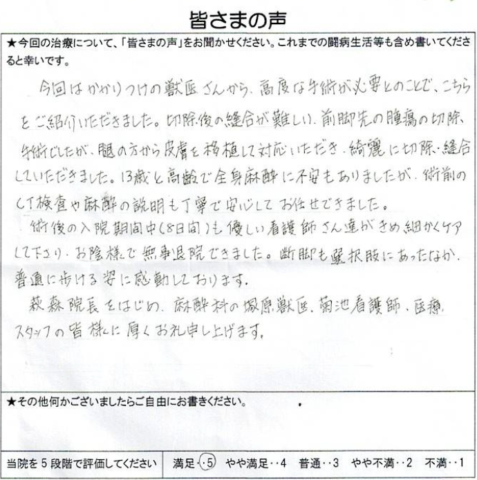 皆さまの声
★今回の治療について、「皆さまの声」をお聞かせください。これまでの闘病生活等も含め書いてくださ
ると幸いです。
今回はかかりつけの獣医さんから、高度な手術が必要とのことで、こちら
をご紹介いただきました。切除後の縫合が難しい、前脚先の腫瘍の切除、
手術でしたが、腿の方から皮膚を移植して対応いただき、綺麗に切除・縫合
していただきました。13歳と高齢で全身麻酔に不安もありましたが、術前の
CT検査や麻酔の説明も丁寧で安心してお任せできました。
術後の入院期間中(8日間)も優しい看護師さん達がきめ細かくケア
して下さり、お陰様で無事退院できました。断脚も選択肢にあったなか、
普通に歩ける姿に感動しております。
萩森院長をはじめ、麻酔科の塚原獣医、菊池看護師、医療
スタッフの皆様に厚くお礼申し上げます。
★その他何かございましたらご自由にお書きください。
当院を5段階で評価してください 満足‥5 やや満足‥4 普通‥3 やや不満‥2 不満‥1